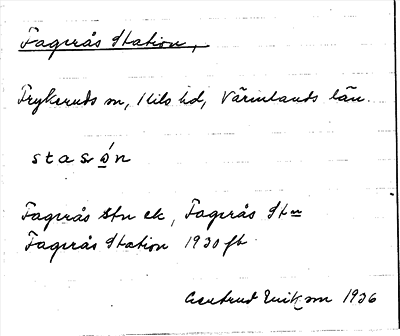 Fagerås Station,
Frykeruds sn, Kils hd, Värmlands län.
stasǿn
Fagerås Stn ek, Fagerås Stn
Fagerås Station 1930 fb
Gertrud Erikson 1936